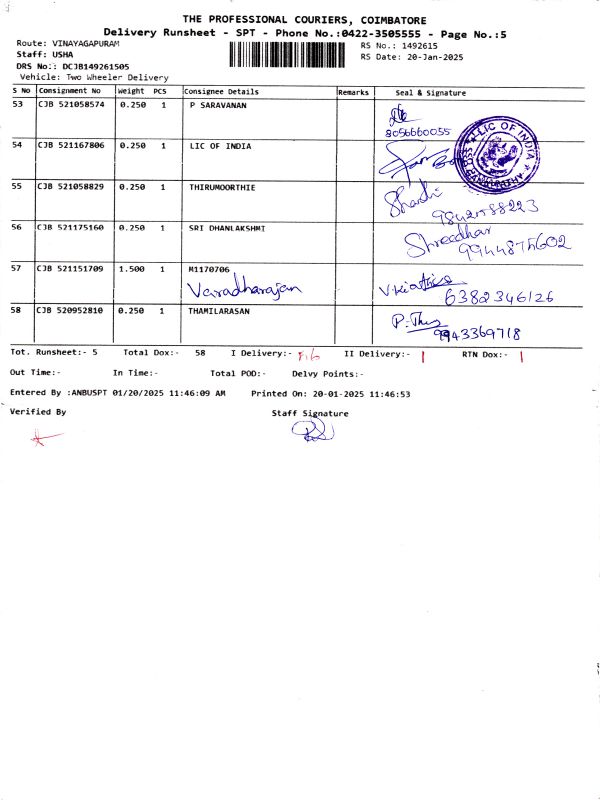 THE PROFESSIONAL COURIERS, COIMBATORE
Delivery Runsheet - SPT - Phone No.:0422-3505555 - Page No.:5
Route: VINAYAGAPURAM
Staff: USHA
DRS No.: DCJB149261505
Vehicle: Two Wheeler Delivery
RS No.: 1492615
RS Date: 20-Jan-2025
S No Consignment No Weight PCS Consignee Details Remarks Seal & Signature
53 CJB 521058574 0.250 1 P SARAVANAN
8056660055
54 CJB 521167806 0.250 1 LIC OF INDIA
LIC OF INDIA
55 CJB 521058829 0.250 1 THIRUMOORTHIE
Shanthi
9842088223
56 CJB 521175160 0.250 1 SRI DHANLAKSHMI
Shreedhar
9944875602
57 CJB 521151709 1.500 1 M1170706
Varadharajan
6382346126
58 CJB 520952810 0.250 1 THAMILARASAN
9943369718
Tot. Runsheet:- 5 Total Dox:- 58 I Delivery:- 56 II Delivery:- 1 RTN Dox:- 1
Out Time:- In Time:- Total POD:- Delvy Points:-
Entered By :ANBUSPT 01/20/2025 11:46:09 AM Printed On: 20-01-2025 11:46:53
Verified By Staff Signature